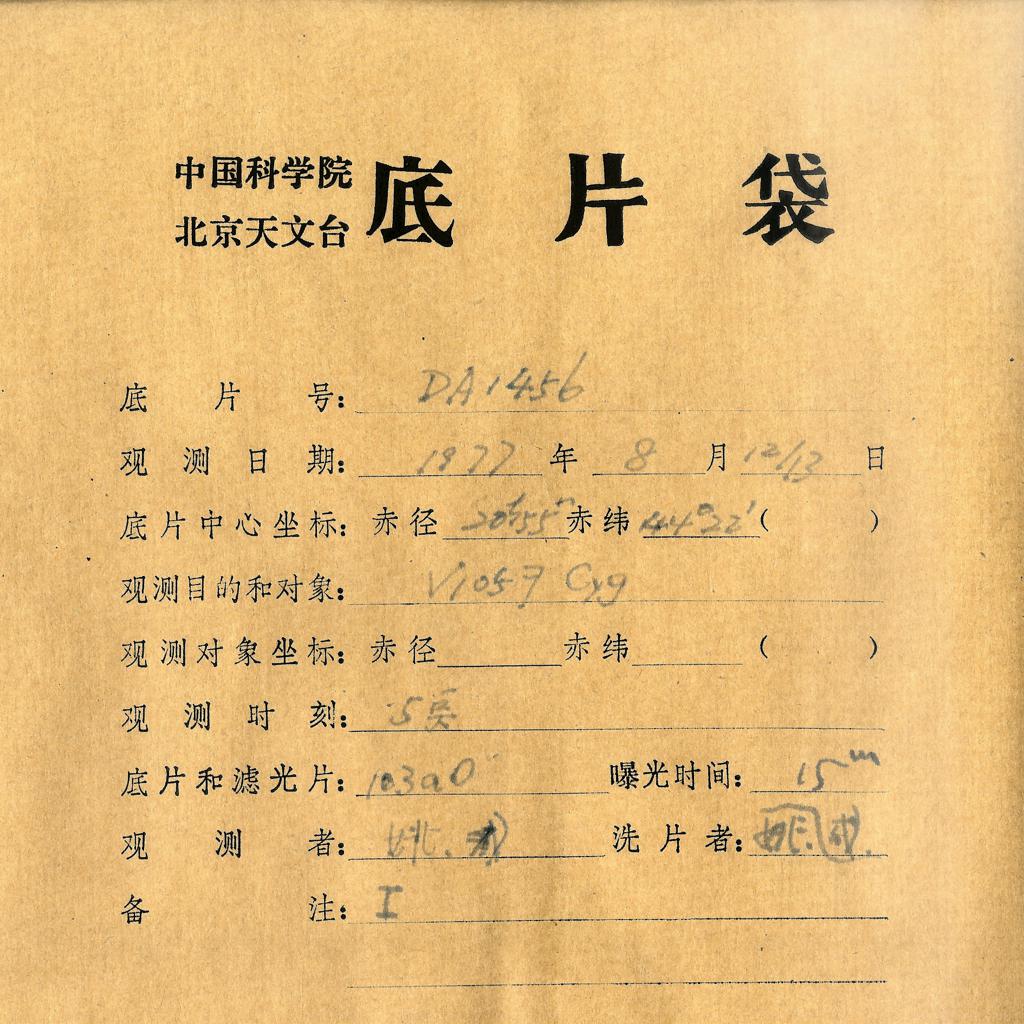 中国科学院
北京天文台
底片袋
底片号: DA1456
观测日期: 1977年8月12/13日
底片中心坐标: 赤径 20h55m 赤纬 44°22′( )
观测目的和对象: V1057 Cyg
观测对象坐标: 赤径 赤纬 ( )
观测时刻: 5
底片和滤光片: 103aO 曝光时间: 15m
观测者: 姚. 洗片者: 姚
备注: I